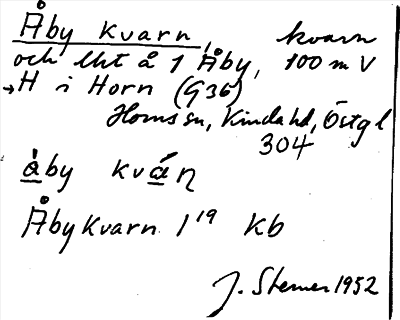 Åby kvarn, kvarn
och lht å 1 Åby, 100 m V
→H i Horn (G36)
Horns sn, Kinda hd, Östgl
304
àby kván
Åby Kvarn 1¹⁹ Kb
J. Sterner 1952